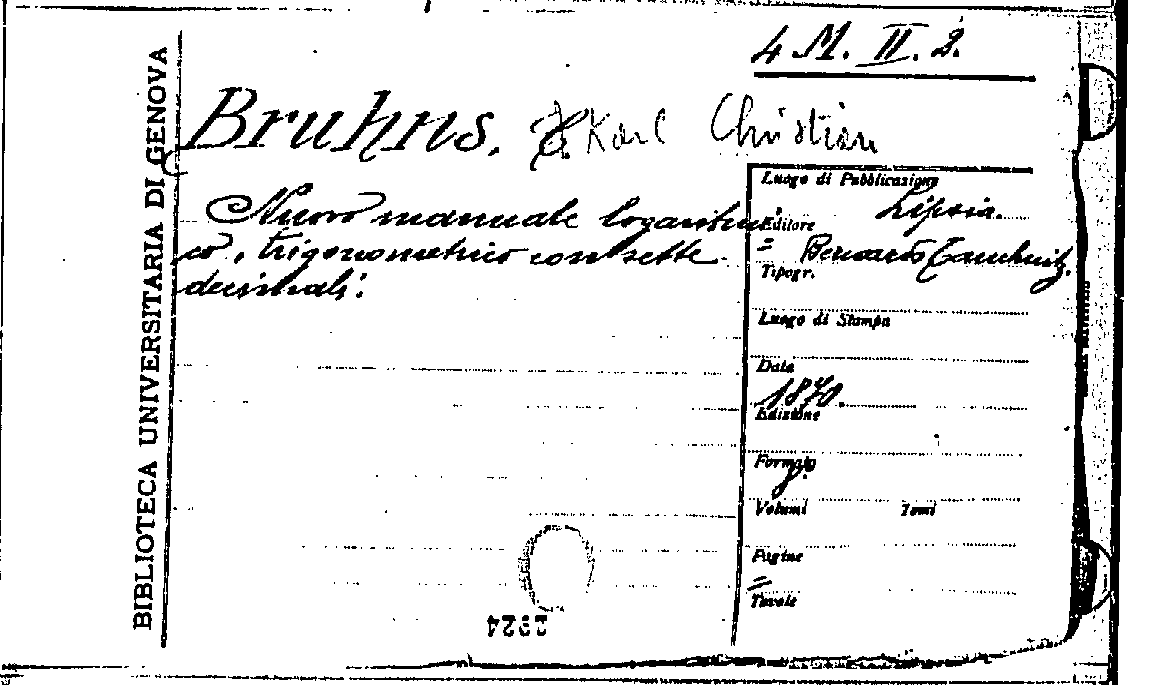 4 M. II. 2.
BIBLIOTECA UNIVERSITARIA DI GENOVA
Bruhns, Karl Christian
Nuovo manuale logaritmi
co, trigonometrico con sette
decimali.
Luogo di Pubblicazione
Lipsia.
Editore
= Bernardo Tauchnitz.
Tipogr.
Luogo di Stampa
Data
1870.
Edizione
Formato
Volumi Tomi
Pagine
=
Tavole